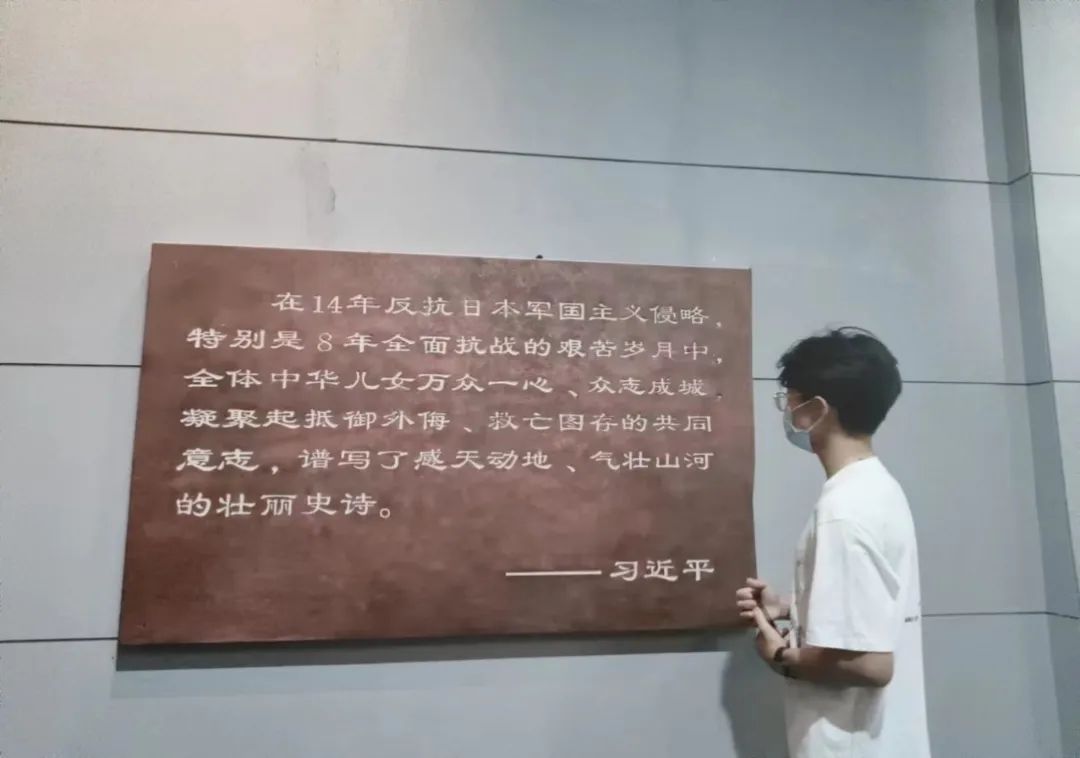 在14年反抗日本军国主义侵略，
特别是8年全面抗战的艰苦岁月中，
全体中华儿女万众一心、众志成城，
凝聚起抵御外侮、救亡图存的共同
意志，谱写了感天动地、气壮山河
的壮丽史诗。
——习近平